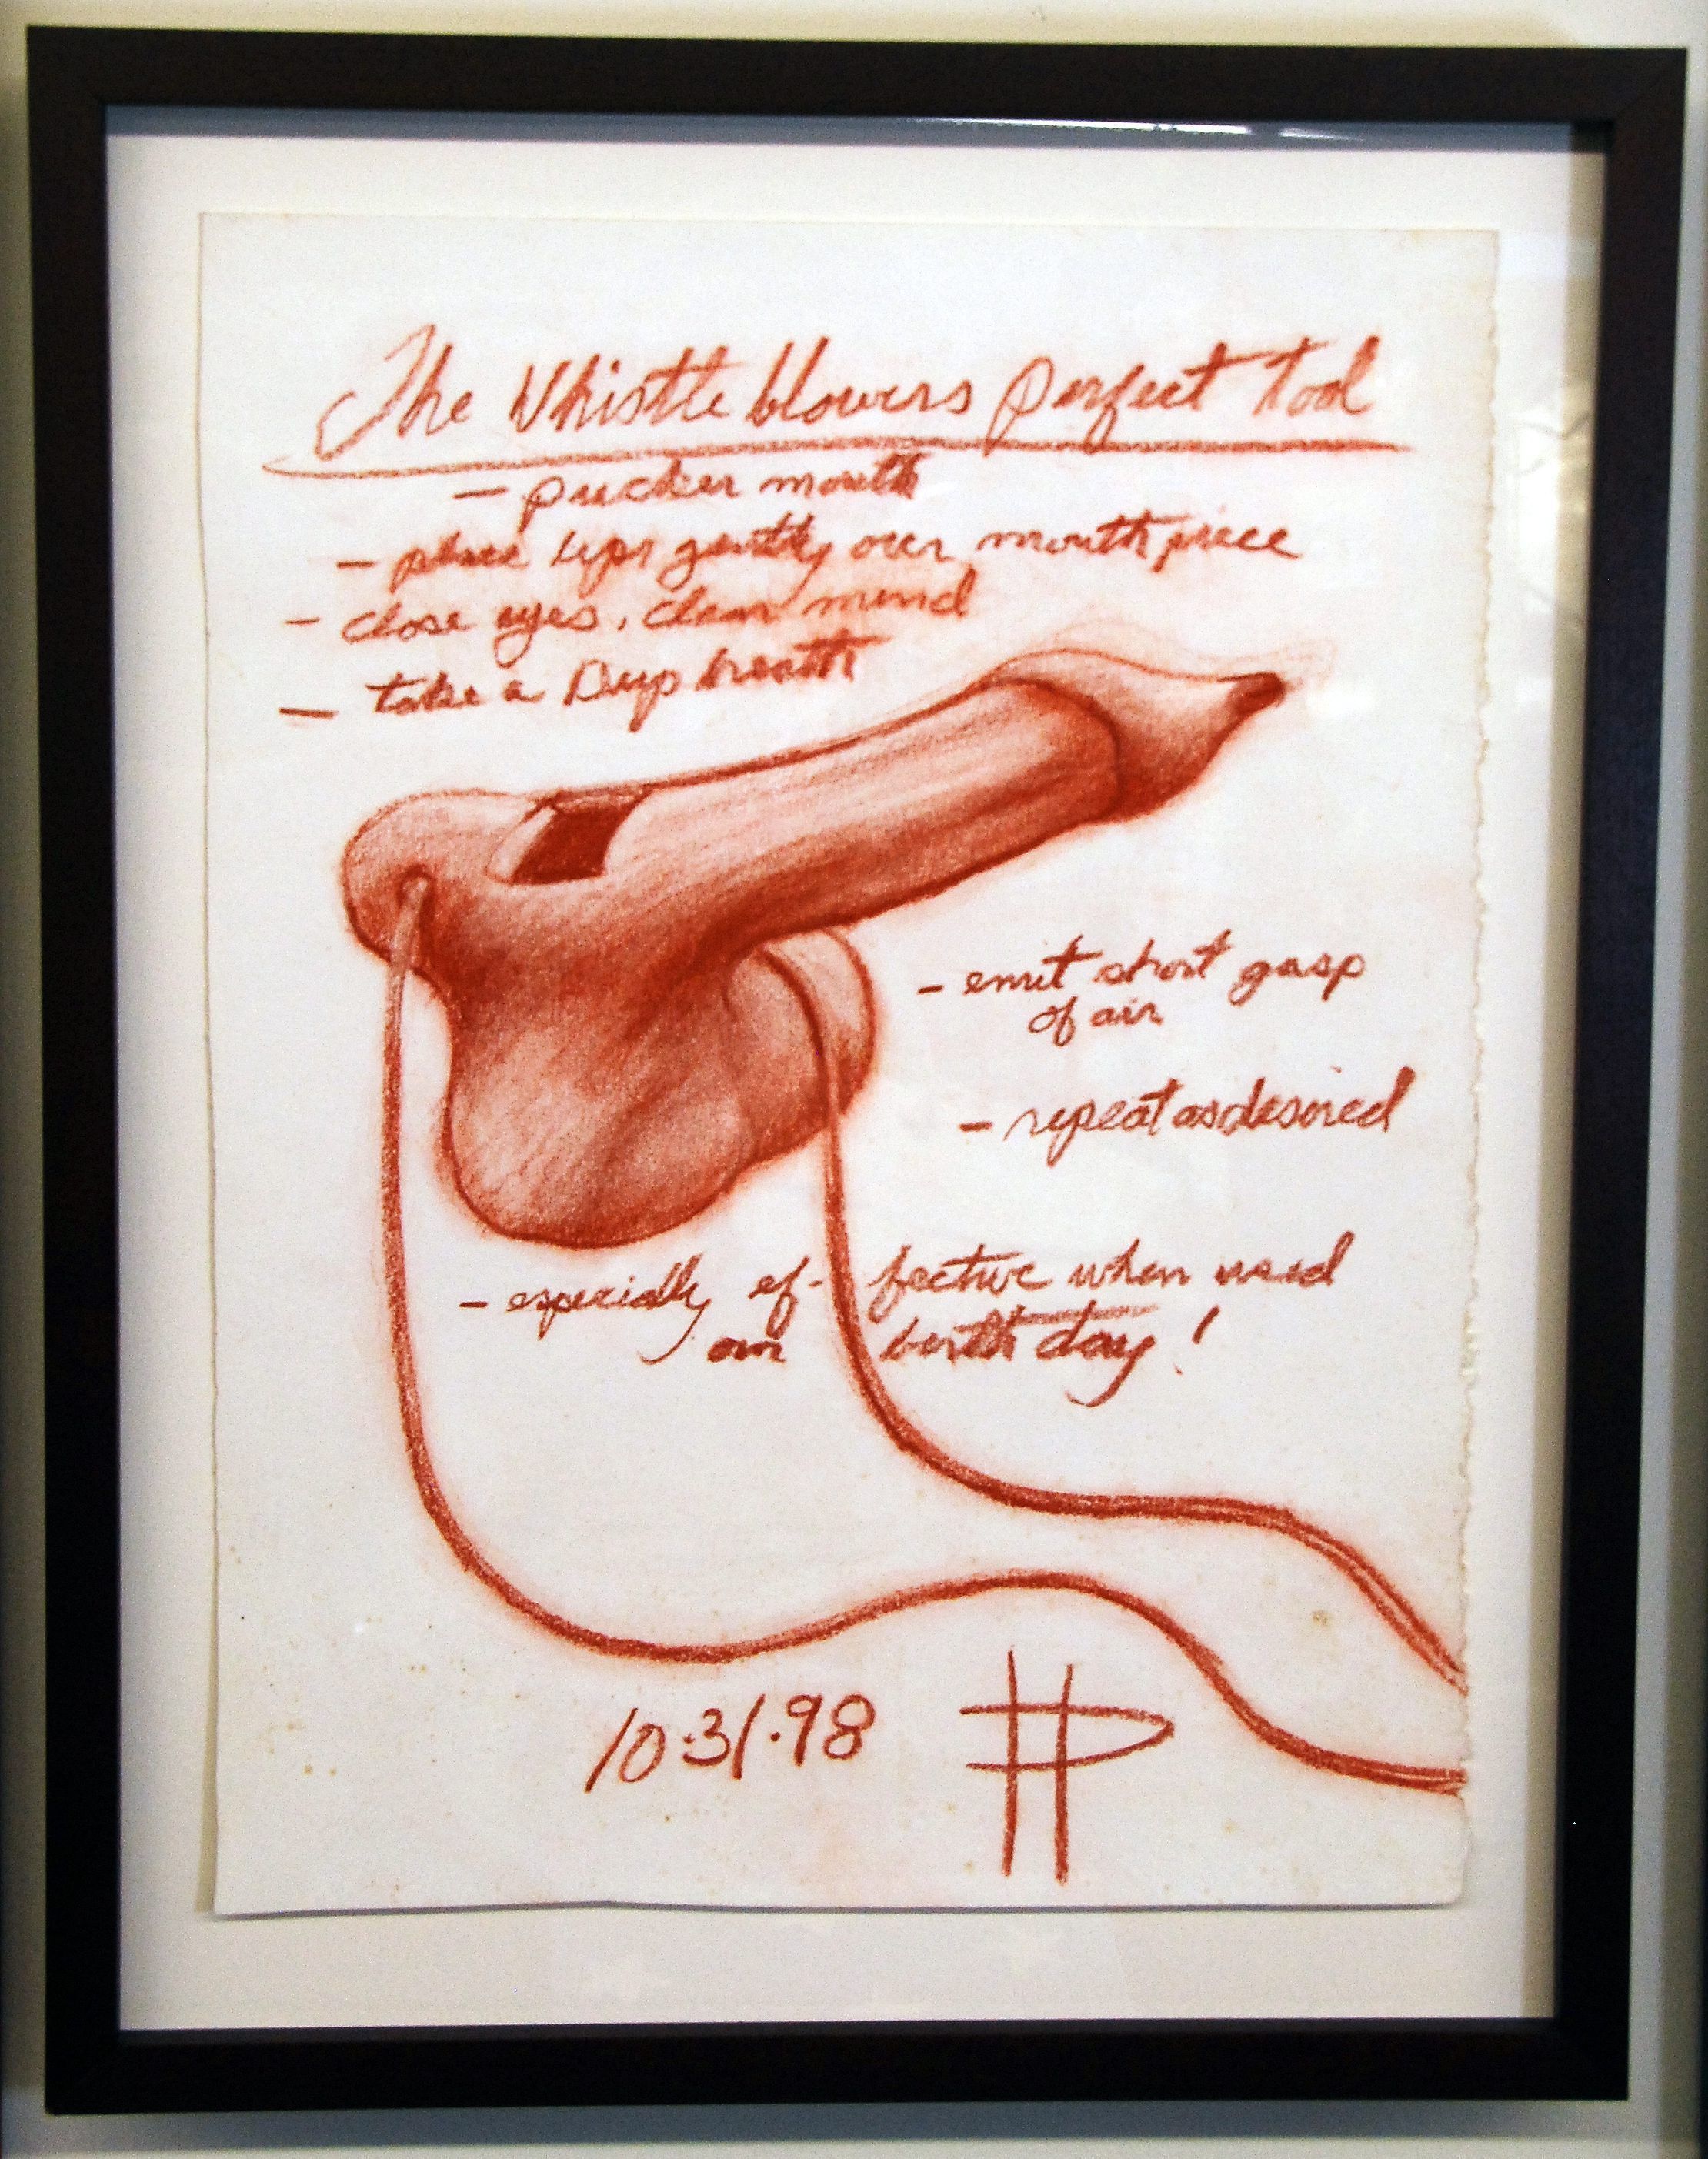 The Whistle blowers perfect tool
- pucker mouth
- place lips gently over mouth piece
- close eyes, clear mind
- take a Deep breath
- emit short gasp
of air
- repeat as desired
- especially ef- fective when used
on birth day!
10.31.98